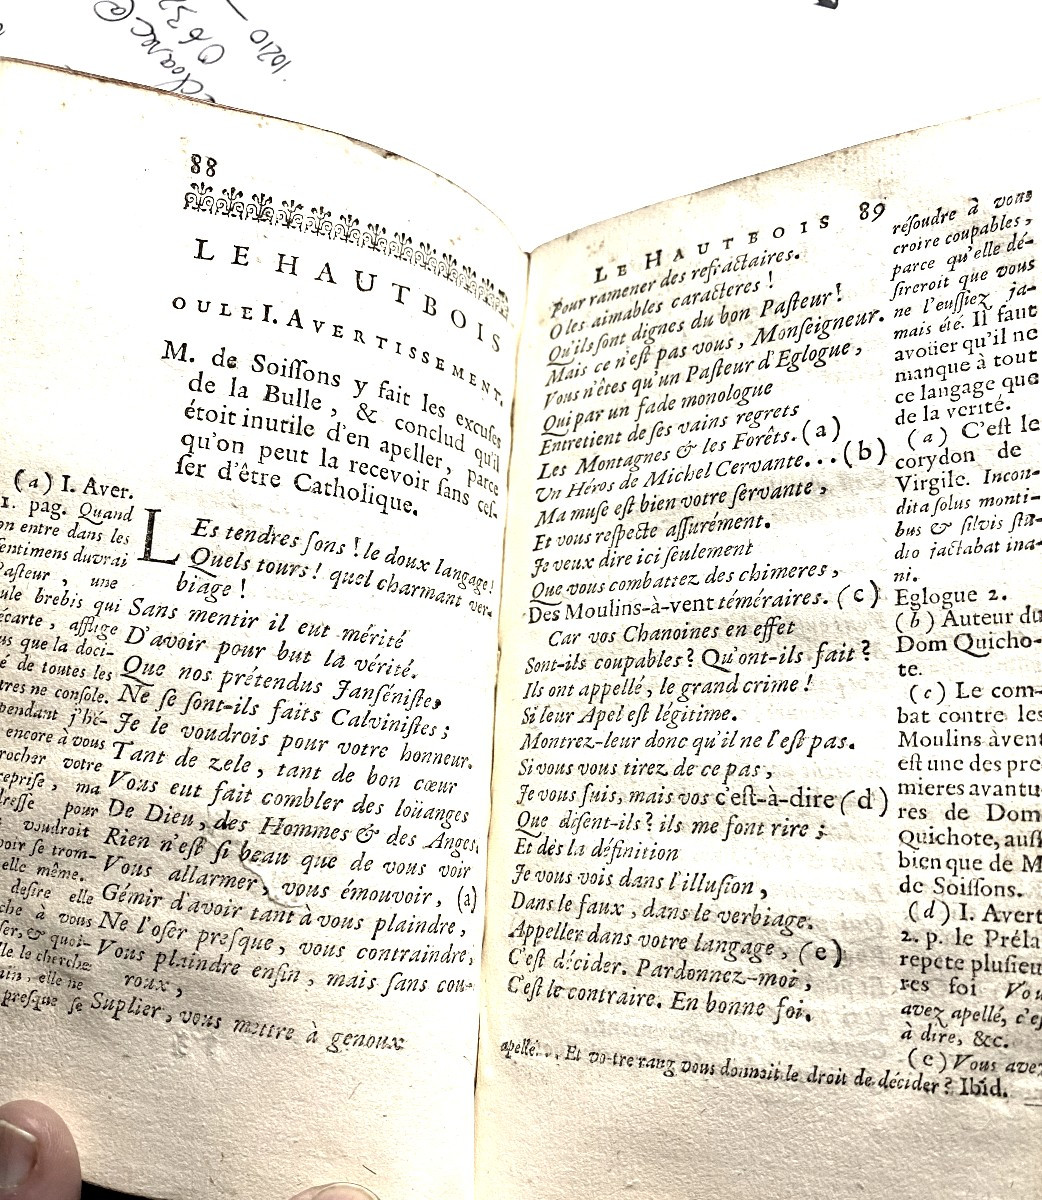 10210
88
LE HAUTBOIS
OU LE I. AVERTISSEMENT.
M. de Soiſſons y fait les excuſes
de la Bulle, & conclud qu'il
étoit inutile d'en apeller, parce
qu'on peut la recevoir ſans ceſ-
ſer d'être Catholique.
LEs tendres ſons ! le doux langage !
Quels tours ! quel charmant ver-
biage !
Sans mentir il eut mérité
D'avoir pour but la vérité.
Que nos prétendus Janſéniſtes
Ne ſe ſont-ils faits Calviniſtes ;
Je le voudrois pour votre honneur.
Tant de zele, tant de bon cœur
Vous eut fait combler des loüanges
De Dieu, des Hommes & des Anges.
Rien n'eſt ſi beau que de vous voir
Vous allarmer, vous émouvoir, (a)
Gémir d'avoir tant à vous plaindre,
Ne l'oſer preſque, vous contraindre,
Vous plaindre enfin, mais ſans cou-
roux,
Suplier, vous mettre à genoux
(a) I. Aver.
1. pag. Quand
on entre dans les
ſentimens du vrai
Paſteur, une
ſeule brebis qui
écarte, afflige
que la doci-
de toutes les
tres ne conſole.
pendant j'hé-
encore à vous
rocher votre
repriſe, ma
dreſſe pour
voudroit
voir ſe trom-
elle même.
deſire elle
che à vous
, & quoi-
le cherche
elle ne
preſque ſe
LE HAUTBOIS 89
Pour ramener des refractaires.
O les aimables caracteres !
Qu'ils ſont dignes du bon Paſteur !
Mais ce n'eſt pas vous, Monſeigneur.
Vous n'êtes qu'un Paſteur d'Eglogue,
Qui par un fade monologue
Entretient de ſes vains regrets
Les Montagnes & les Forêts. (a)
Un Héros de Michel Cervante... (b)
Ma muſe eſt bien votre ſervante,
Et vous reſpecte aſſurément.
Je veux dire ici ſeulement
Que vous combattez des chimeres,
Des Moulins-à-vent téméraires. (c)
Car vos Chanoines en effet
Sont-ils coupables ? Qu'ont-ils fait ?
Ils ont appellé, le grand crime !
Si leur Apel eſt légitime.
Montrez-leur donc qu'il ne l'eſt pas.
Si vous vous tirez de ce pas,
Je vous ſuis, mais vos c'eſt-à-dire (d)
Que diſent-ils ? ils me font rire ;
Et dès la définition
Je vous vois dans l'illuſion,
Dans le faux, dans le verbiage.
Appeller dans votre langage, (e)
C'eſt décider. Pardonnez-moi,
C'eſt le contraire. En bonne foi.
réſoudre à vous
croire coupables,
parce qu'elle dé-
ſireroit que vous
ne l'euſſiez ja-
mais été. Il faut
avoüer qu'il ne
manque à tout
ce langage que
de la verité.
(a) C'eſt le
corydon de
Virgile. Incon-
dita ſolus monti-
bus & ſilvis ſtu-
dio jactabat ina-
ni.
Eglogue 2.
(b) Auteur du
Dom Quicho-
te.
(c) Le com-
bat contre les
Moulins à vent
eſt une des pre
mieres avantu
res de Dom
Quichote, auſſ
bien que de M
de Soiſſons.
(d) I. Avert
2. p. le Préla
repete pluſieu
res foi Vou
avez apellé, c'eſ
à dire, &c.
(e) Vous avez
apellé... Et vo-tre rang vous donnoit le droit de décider ? Ibid.